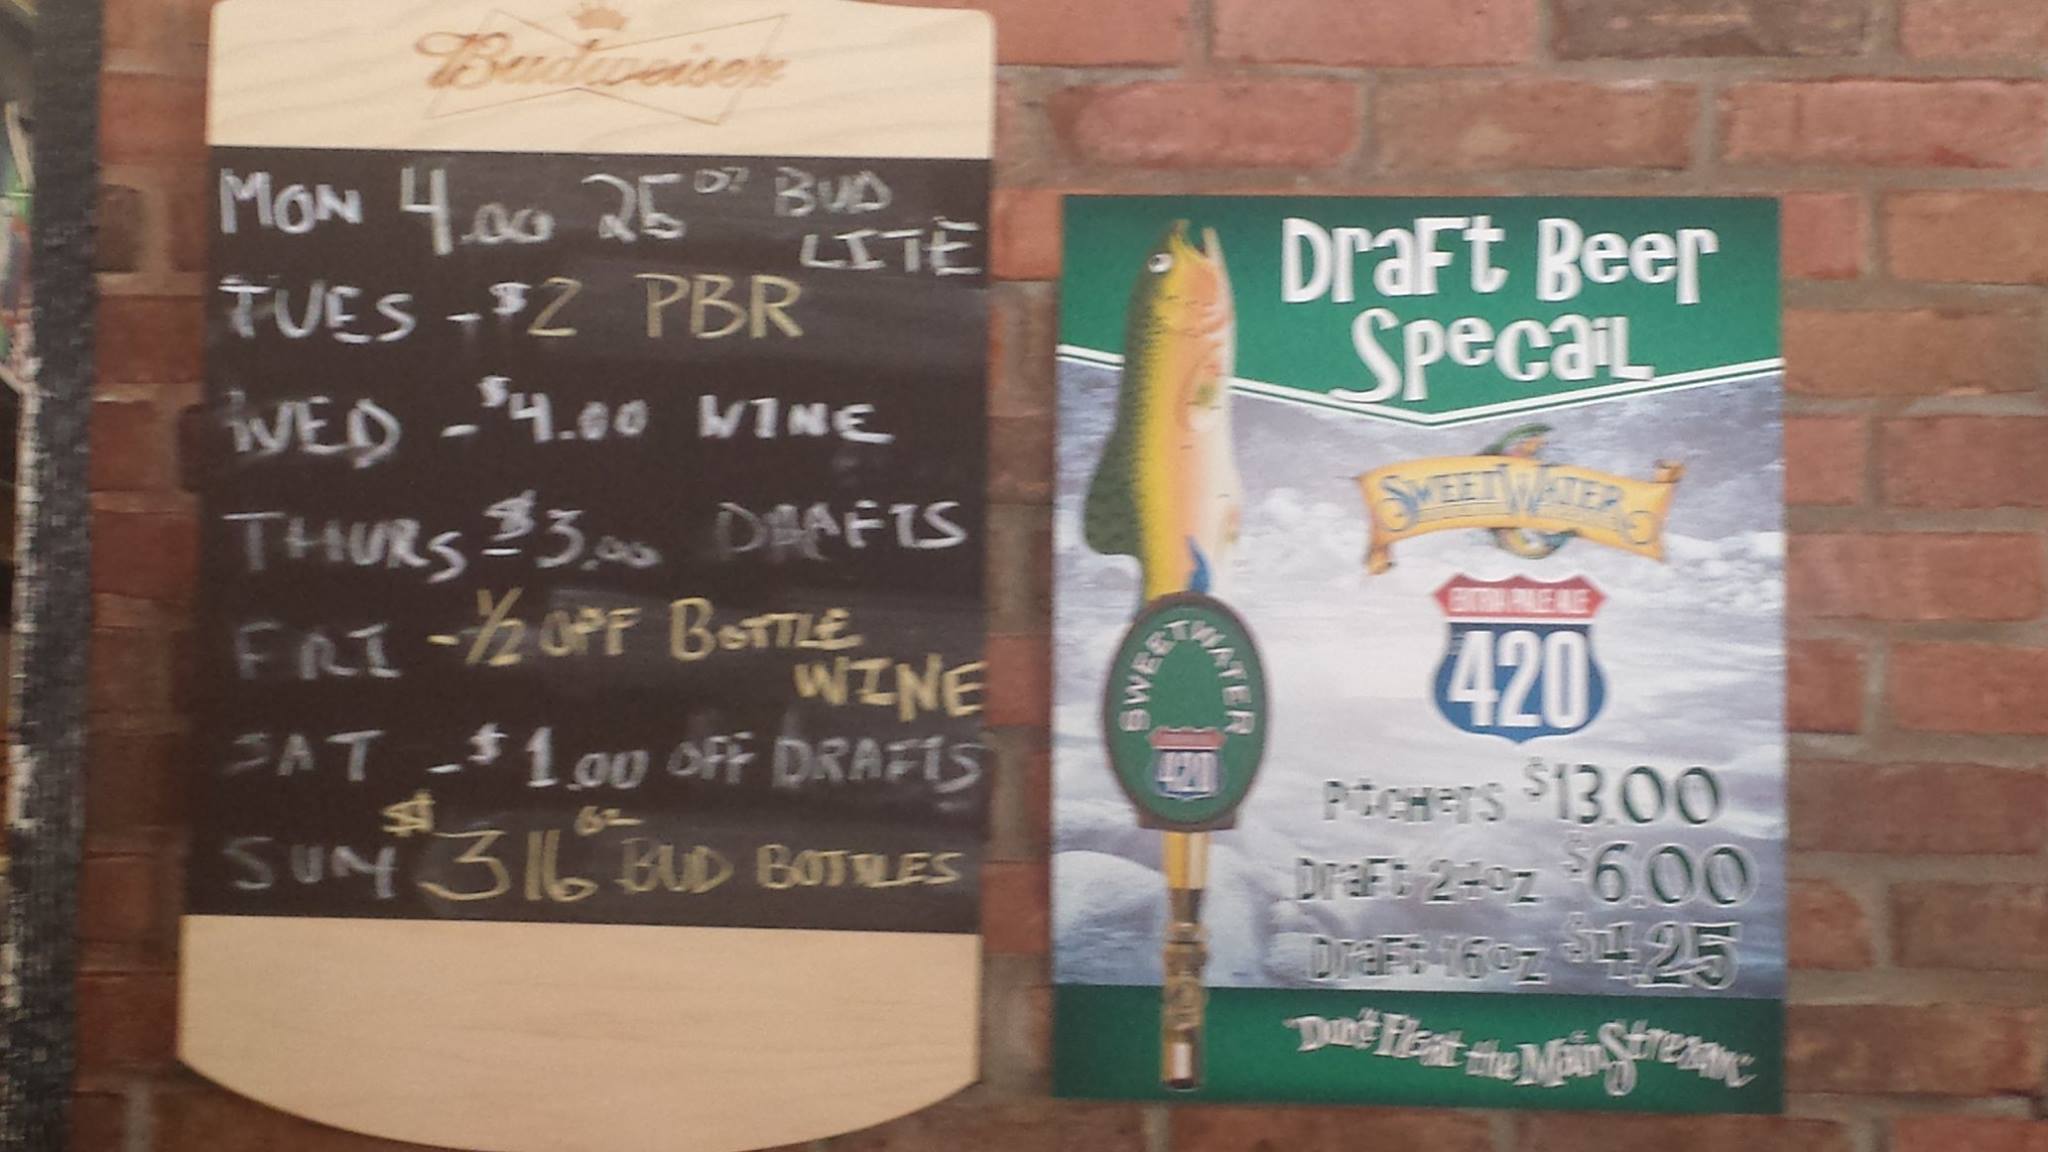 Budweiser
MON 4.00 25oz BUD
LITE
TUES - $2 PBR
WED - $4.00 WINE
THURS $3.00 DRAFTS
FRI - 1/2 OFF BOTTLE
WINE
SAT - $1.00 OFF DRAFTS
SUN $3 16oz BUD BOTTLES
Draft Beer
Specail
SWEETWATER
EXTRA PALE ALE
420
SWEETWATER
420
Pitchers $13.00
Draft 24oz $6.00
Draft 16oz $4.25
"Don't Float the MainStream"